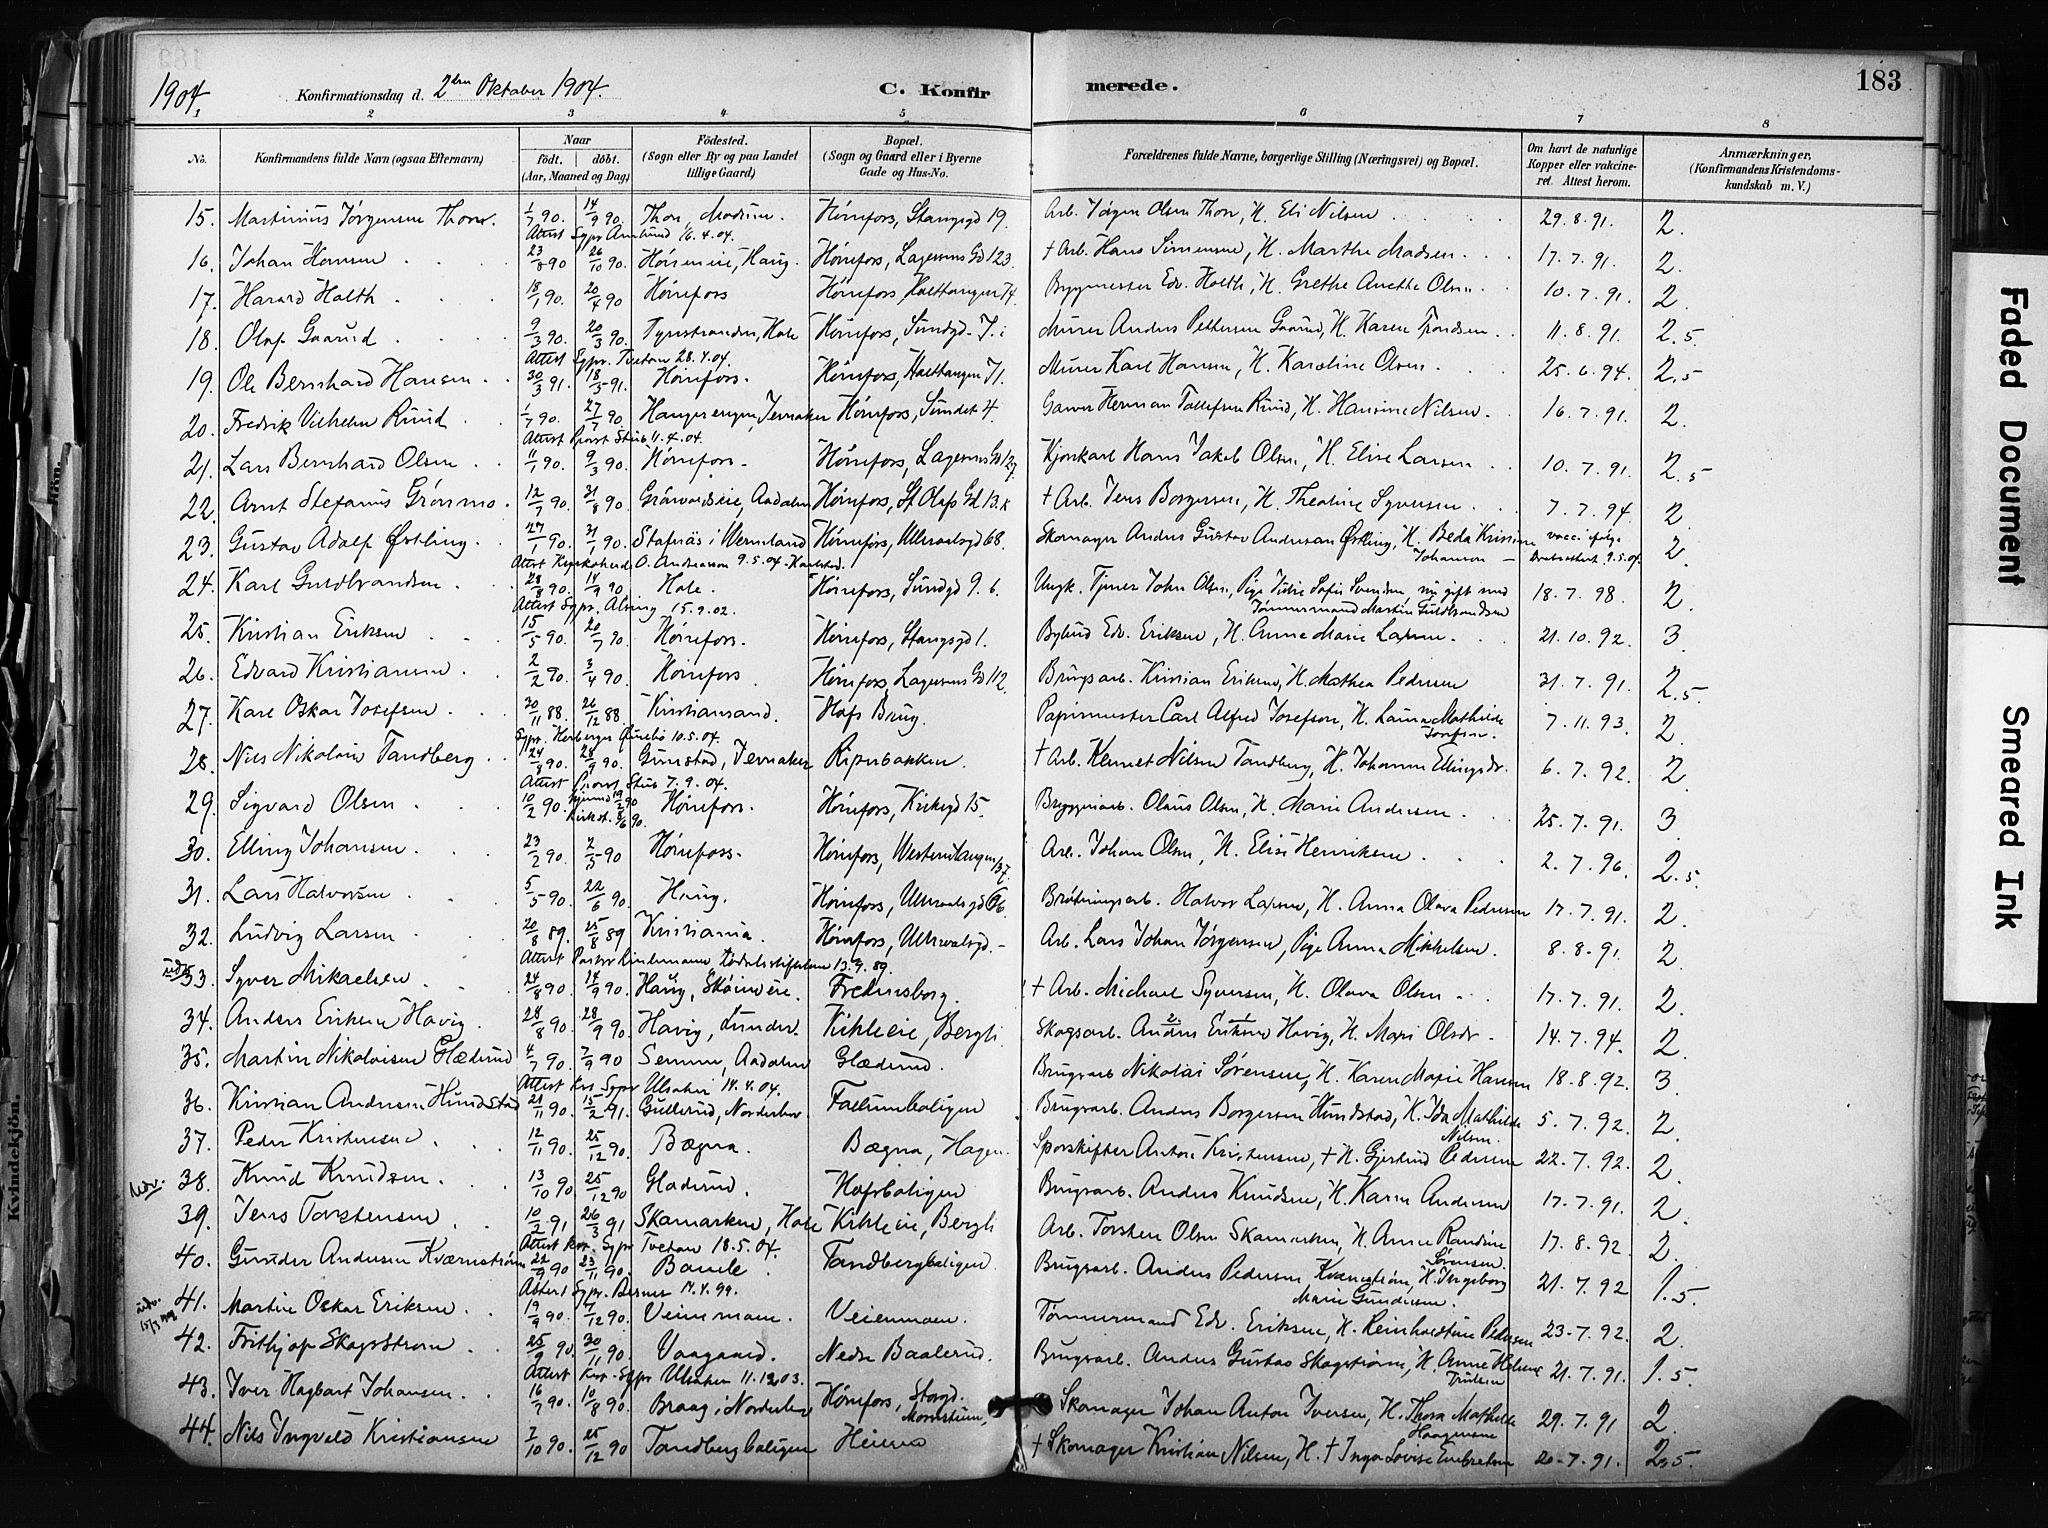 183
1904.
Konfirmationsdag d. 2den Oktober 1904.
C. Konfirmerede.
1 2 3 4 5 6 7 8
No. Konfirmandens fulde Navn (ogsaa Efternavn) Naar födt. döbt. (Aar, Maaned og Dag) Födested. (Sogn eller By og paa Landet tillige Gaard) Bopæl. (Sogn og Gaard eller i Byerne Gade og Hus-No. Forældrenes fulde Navne, borgerlige Stilling (Næringsvei) og Bopæl. Om havt de naturlige Kopper eller vakcineret. Attest herom. Anmærkninger, (Konfirmandens Kristendomskundskab m. V.)
15. Martinius Jörgensen Thon. 1/7 90. 14/9 90. Thon, Modum. Hönefos, Stangsgd 19. Arb. Jörgen Olsen Thon, H. Eli Nilsen 29.8.91. 2.
Attest Sgpr 16.4.04.
16. Johan Hansen 23/8 90 26/10 90. Höneneie, Haug. Hönefos, Lagesens Gd 123. † Arb. Hans Simensen, H. Marthe Madsen 17.7.91. 2.
17. Harald Holth 18/1 90. 20/4 90 Hönefos Hönefos, Holttangen 74. Bygmester Edv. Holth, H. Grethe Anethe Olsen 10.7.91. 2.
18. Olaf Gaarud 9/3 90. 20/3 90. Tyristranden, Hole Hönefos, Sundgd. Murer Anders Pettersen Gaarud, H. Karen Trondsen 11.8.91. 2.5
Attest Sgpr. Tvetan 28.4.04.
19. Ole Bernhard Hansen 30/3 91. 18/5 91. Hönefos. Hönefos, Holttangen 71. Murer Karl Hansen, H. Karoline Olsen 25.6.94. 2.5
20. Fredrik Vilhelm Ruud 1/7 90. 27/7 90. Jevnaker Hönefos, Sundet 4. Garver Herman Tollefsen Ruud, H. Hansine Nilsen 16.7.91. 2.
Attest Provst Stub 11.4.04.
21. Lars Bernhard Olsen 11/1 90. 9/3 90. Hönefos. Hönefos, Lagesens Gd 127. Kjörekarl Hans Jakob Olsen, H. Elise Larsen 10.7.91. 2.5
22. Arnt Stefanus Grönmo. 12/7 90. 31/8 90. Aadalen Hönefos, St Olafs Gd 13. † Arb. Jens Borgersen, H. Theoline Syversen 7.7.94. 2.
23. Gustav Adolf Østling. 27/1 90. 31/1 90. Stafnäs i Wermland Hönefos, Ullvoalsgd 68. Skomager Anders Gustav Andersan Østling, H. Beda Kristine Johanson 9.5.04. 2.
Attest O. Andreasson 9.5.04. Karlstad.
24. Karl Guldbrandsen 28/8 90. 14/9 90. Hole. Hönefos, Sundgd 9. 6. Ungk. Tjener John Olsen, Pige Julie Sofie Svendsen, nu gift med Tömmermand Martin Guldbrandsen 18.7.98. 2.
Attest Sgpr. Alsing 15.9.02.
25. Kristian Eriksen 15/5 90. 20/7 90. Hönefos. Hönefos, Stangsgd 1. Bybud Edv. Eriksen, H. Anne Marie Larsen 21.10.92. 3.
26. Edvard Kristiansen 2/2 90. 3/4 90. Hönefos Hönefos, Lagesens Gd 112. Brugsarb. Kristian Eriksen, H. Mathea Pedersen 31.7.91. 2.5
27. Karl Oskar Josefsen 30/11 88. 26/12 88. Kristiansand. Hofs Brug. Papirmester Carl Alfred Josefson, H. Laura Mathilde Josefsen. 7.11.93. 2.
10.5.04.
28. Nils Nikolai Tandberg 24/8 90. 28/9 90. Grinstad, Jevnaker Ripubakken. † Arb. Kennet Nilsen Tandberg, H. Johanne Ellingsdr. 6.7.92. 2.
Attest Provst Stub 7.9.04.
29. Sigvard Olsen 10/2 90. Hjemd. Kirkest. Hönefos. Hönefos, Kirkegd 15. Bryggeriarb. Olaus Olsen, H. Marie Andersen 25.7.91. 3
30. Elling Johansen 23/2 90. 2/5 90 Hönefoss. Hönefos, Westerntangen 37. Arb. Johan Olsen, H. Elise Henriksen 2.7.96. 2.5.
31. Lars Halvorsen 5/5 90. 22/6 90. Haug. Hönefos, Ullvoalsgd 66. Bröttningsarb. Halvor Larsen, H. Anna Olava Pedersen 17.7.91. 2.
32. Ludvig Larsen 20/8 89. 25/8 89 Kristiania. Hönefos, Ullvoalsgd. Arb. Lars Johan Jörgensen, Pige Anna Mikkelsen. 8.8.91. 2.
Attest Pastor Lindemann Födselsstiftelsen 13.9.89.
33. Syver Mikaelsen 24/8 90. 14/9 90. Haug, Fredensborg. † Arb. Michael Syversen, H. Olava Olsen 17.7.91. 2.
34. Anders Eriksen Havig. 28/8 90. 28/9 90. Havig, Lunder. Kihleeie, Bergli. Skogsarb. Anders Eriksen Havig, H. Mari Olsdr. 14.7.94. 2.
35. Martin Nikolaisen Glæderud 4/7 90. 7/9 90 Semmen, Aadalen Glæderud. Brugsarb Nikolai Sörensen, H. Karen Marie Hansen 18.8.92. 3
Attest Kst Sgpr Ulsaker 14.4.04.
36. Kristian Andersen Hundstad 21/11 90. 15/2 91. Gullerud, Norderhov Follumboligen Brugsarb. Anders Borgersen Hundstad, H. Ida Mathilde Nilsen. 5.7.92. 2.
37. Peder Kristensen 12/11 90. 25/12 90. Bægna. Bægna, Hagen. Sporskifter Anton Kristensen, † H. Gjertrud Pedersen 22.7.92. 2.
udv. 38. Knud Knudsen 13/10 90. 25/12 90 Gladerud. Hofsboligen Brugsarb. Anders Knudsen, H. Karen Andersen 17.7.91. 2.
39. Jens Torstensen 10/2 91 26/3 91 Skamarken, Hole Kihleeie, Bergli Arb. Torsten Olsen Skamarken, H. Anne Randine Sörensen. 17.8.92. 2.
Attest Kst. Sgpr Tvetan 18.5.04.
40. Gunder Andersen Kværnström 22/9 90 23/11 90. Bamle. Tandbergboligen. Brugsarb. Anders Pedersen Kvernström, H. Ingeborg Marie Gundersen. 21.7.92 1.5.
Attest Sgpr. 17.4.99.
udv. 41. Martin Oskar Eriksen 19/9 90. 7/12 90. Veienmoen. Veienmoen. Tömmermand Edv. Eriksen, H. Reinhardtine Pedersen 23.7.92. 2.
42. Frithjof Skogström 25/9 90. 30/11 90. Vaagaard. Nedre Baalerud. Brugsarb. Anders Gustav Skogström, H. Anne Helene Trulsen 21.7.91. 1.5.
Attest Kst. Sgpr Ulsaker 11.12.03.
43. Iver Hagbart Johansen 16/7 90. 10/8 90. Braag i Norderhov Hönefos, Storgd. Skomager Johan Anton Iversen, H. Thora Mathilde Haagensen 29.7.91 2.
44. Nils Ingvald Kristiansen 7/10 90. 25/12 90 Tandbergboligen Heieren † Skomager Kristian Nilsen, H. † Inga Lovise Enebretsen 20.7.91. 2.5.
Kvindekjön.
Faded Document
Smeared Ink